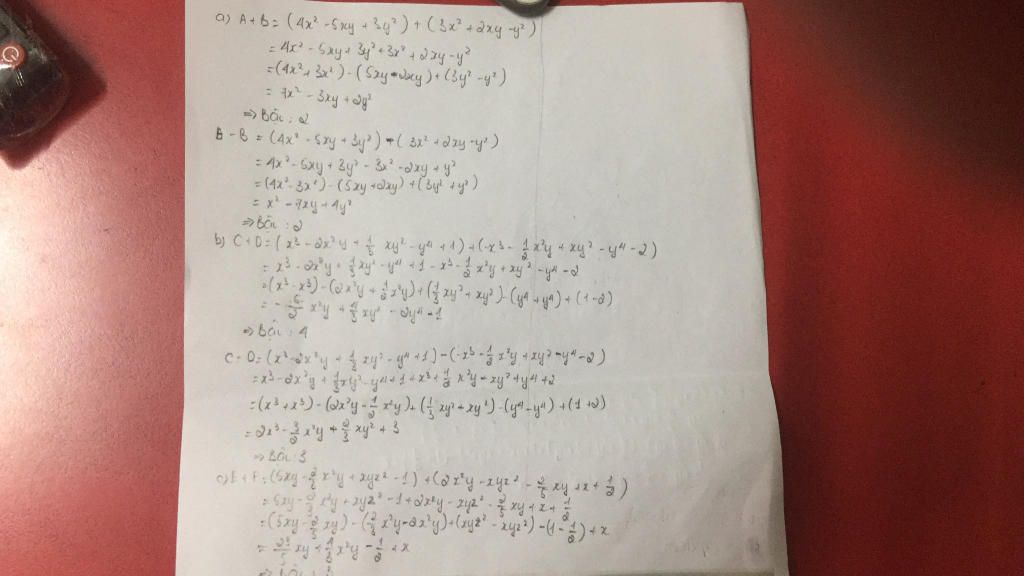 a) A + B = (4x² - 5xy + 3y²) + (3x² + 2xy - y²)
= 4x² - 5xy + 3y² + 3x² + 2xy - y²
= (4x² + 3x²) - (5xy - 2xy) + (3y² - y²)
= 7x² - 3xy + 2y²
⇒ Bậc : 2
A - B = (4x² - 5xy + 3y²) - (3x² + 2xy - y²)
= 4x² - 5xy + 3y² - 3x² - 2xy + y²
= (4x² - 3x²) - (5xy + 2xy) + (3y² + y²)
= x² - 7xy + 4y²
⇒ Bậc : 2
b) C + D = (x³ - 2x²y + 1/3 xy² - y⁴ + 1) + (-x³ - 1/2 x²y + xy² - y⁴ - 2)
= x³ - 2x²y + 1/3 xy² - y⁴ + 1 - x³ - 1/2 x²y + xy² - y⁴ - 2
= (x³ - x³) - (2x²y + 1/2 x²y) + (1/3 xy² + xy²) - (y⁴ + y⁴) + (1 - 2)
= - 5/2 x²y + 4/3 xy² - 2y⁴ - 1
⇒ Bậc : 4
C - D = (x³ - 2x²y + 1/3 xy² - y⁴ + 1) - (-x³ - 1/2 x²y + xy² - y⁴ - 2)
= x³ - 2x²y + 1/3 xy² - y⁴ + 1 + x³ + 1/2 x²y - xy² + y⁴ + 2
= (x³ + x³) - (2x²y - 1/2 x²y) + (1/3 xy² - xy²) - (y⁴ - y⁴) + (1 + 2)
= 2x³ - 3/2 x²y - 2/3 xy² + 3
⇒ Bậc : 3
c) E + F = (5xy - 2/3 x²y + xyz² - 1) + (2x²y - xyz² - 2/5 xy + x + 1/2)
= 5xy - 2/3 x²y + xyz² - 1 + 2x²y - xyz² - 2/5 xy + x + 1/2
= (5xy - 2/5 xy) - (2/3 x²y - 2x²y) + (xyz² - xyz²) - (1 - 1/2) + x
= 23/5 xy + 4/3 x²y - 1/2 + x